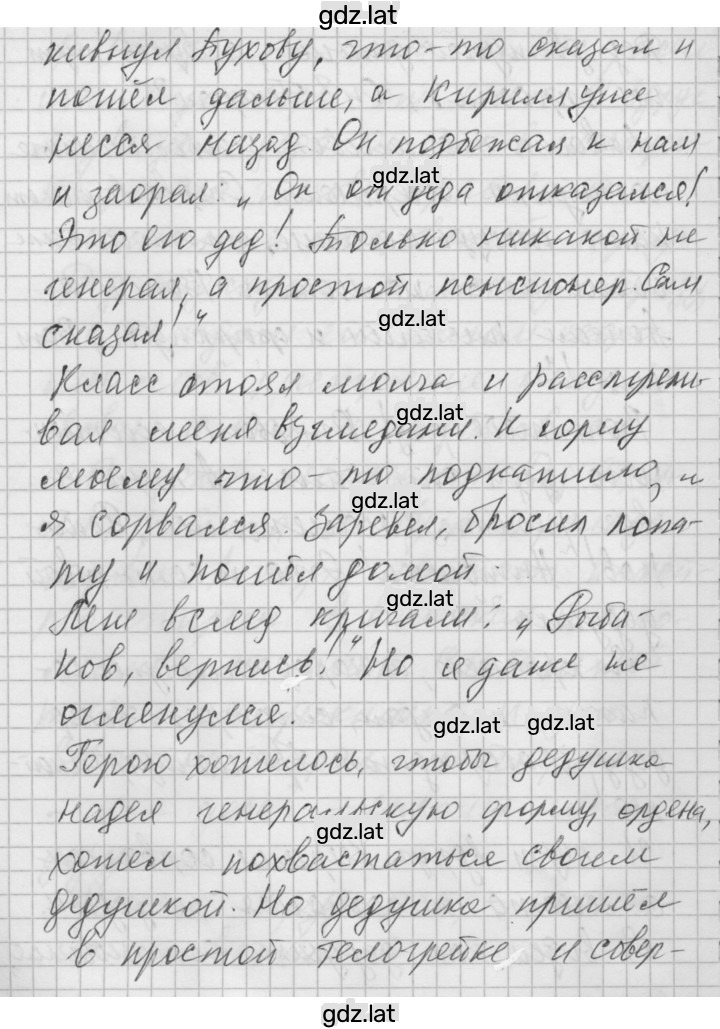 gdz.lat
кивнул Тухову, что-то сказал и
пошёл дальше, а Кирилл уже
несся назад. Он подбежал к нам
gdz.lat
и заорал: „Он от деда отказался!
Это его дед! Только никакой не
генерал, а простой пенсионер. Сам
gdz.lat
сказал!“
Класс стоял молча и расстрели-
gdz.lat
вал меня взглядами. К горлу
моему что-то подкатило, и
gdz.lat
я сорвался. Заревел, бросил лопа-
ту и пошёл домой.
gdz.lat
Мне вслед кричали: „Рыба-
ков, вернись!“ Но я даже не
оглянулся.
gdz.lat
gdz.lat
Герою хотелось, чтобы дедушка
надел генеральскую форму, ордена,
gdz.lat
хотел похвастаться своим
дедушкой. Но дедушка пришёл
gdz.lat
в простой телогрейке и совер-
gdz.lat